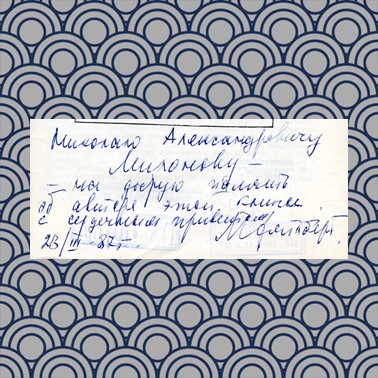 Николаю Александровичу
Милонову —
— на добрую память
об авторе этой книги
с сердечным приветом
23/III-87 г.